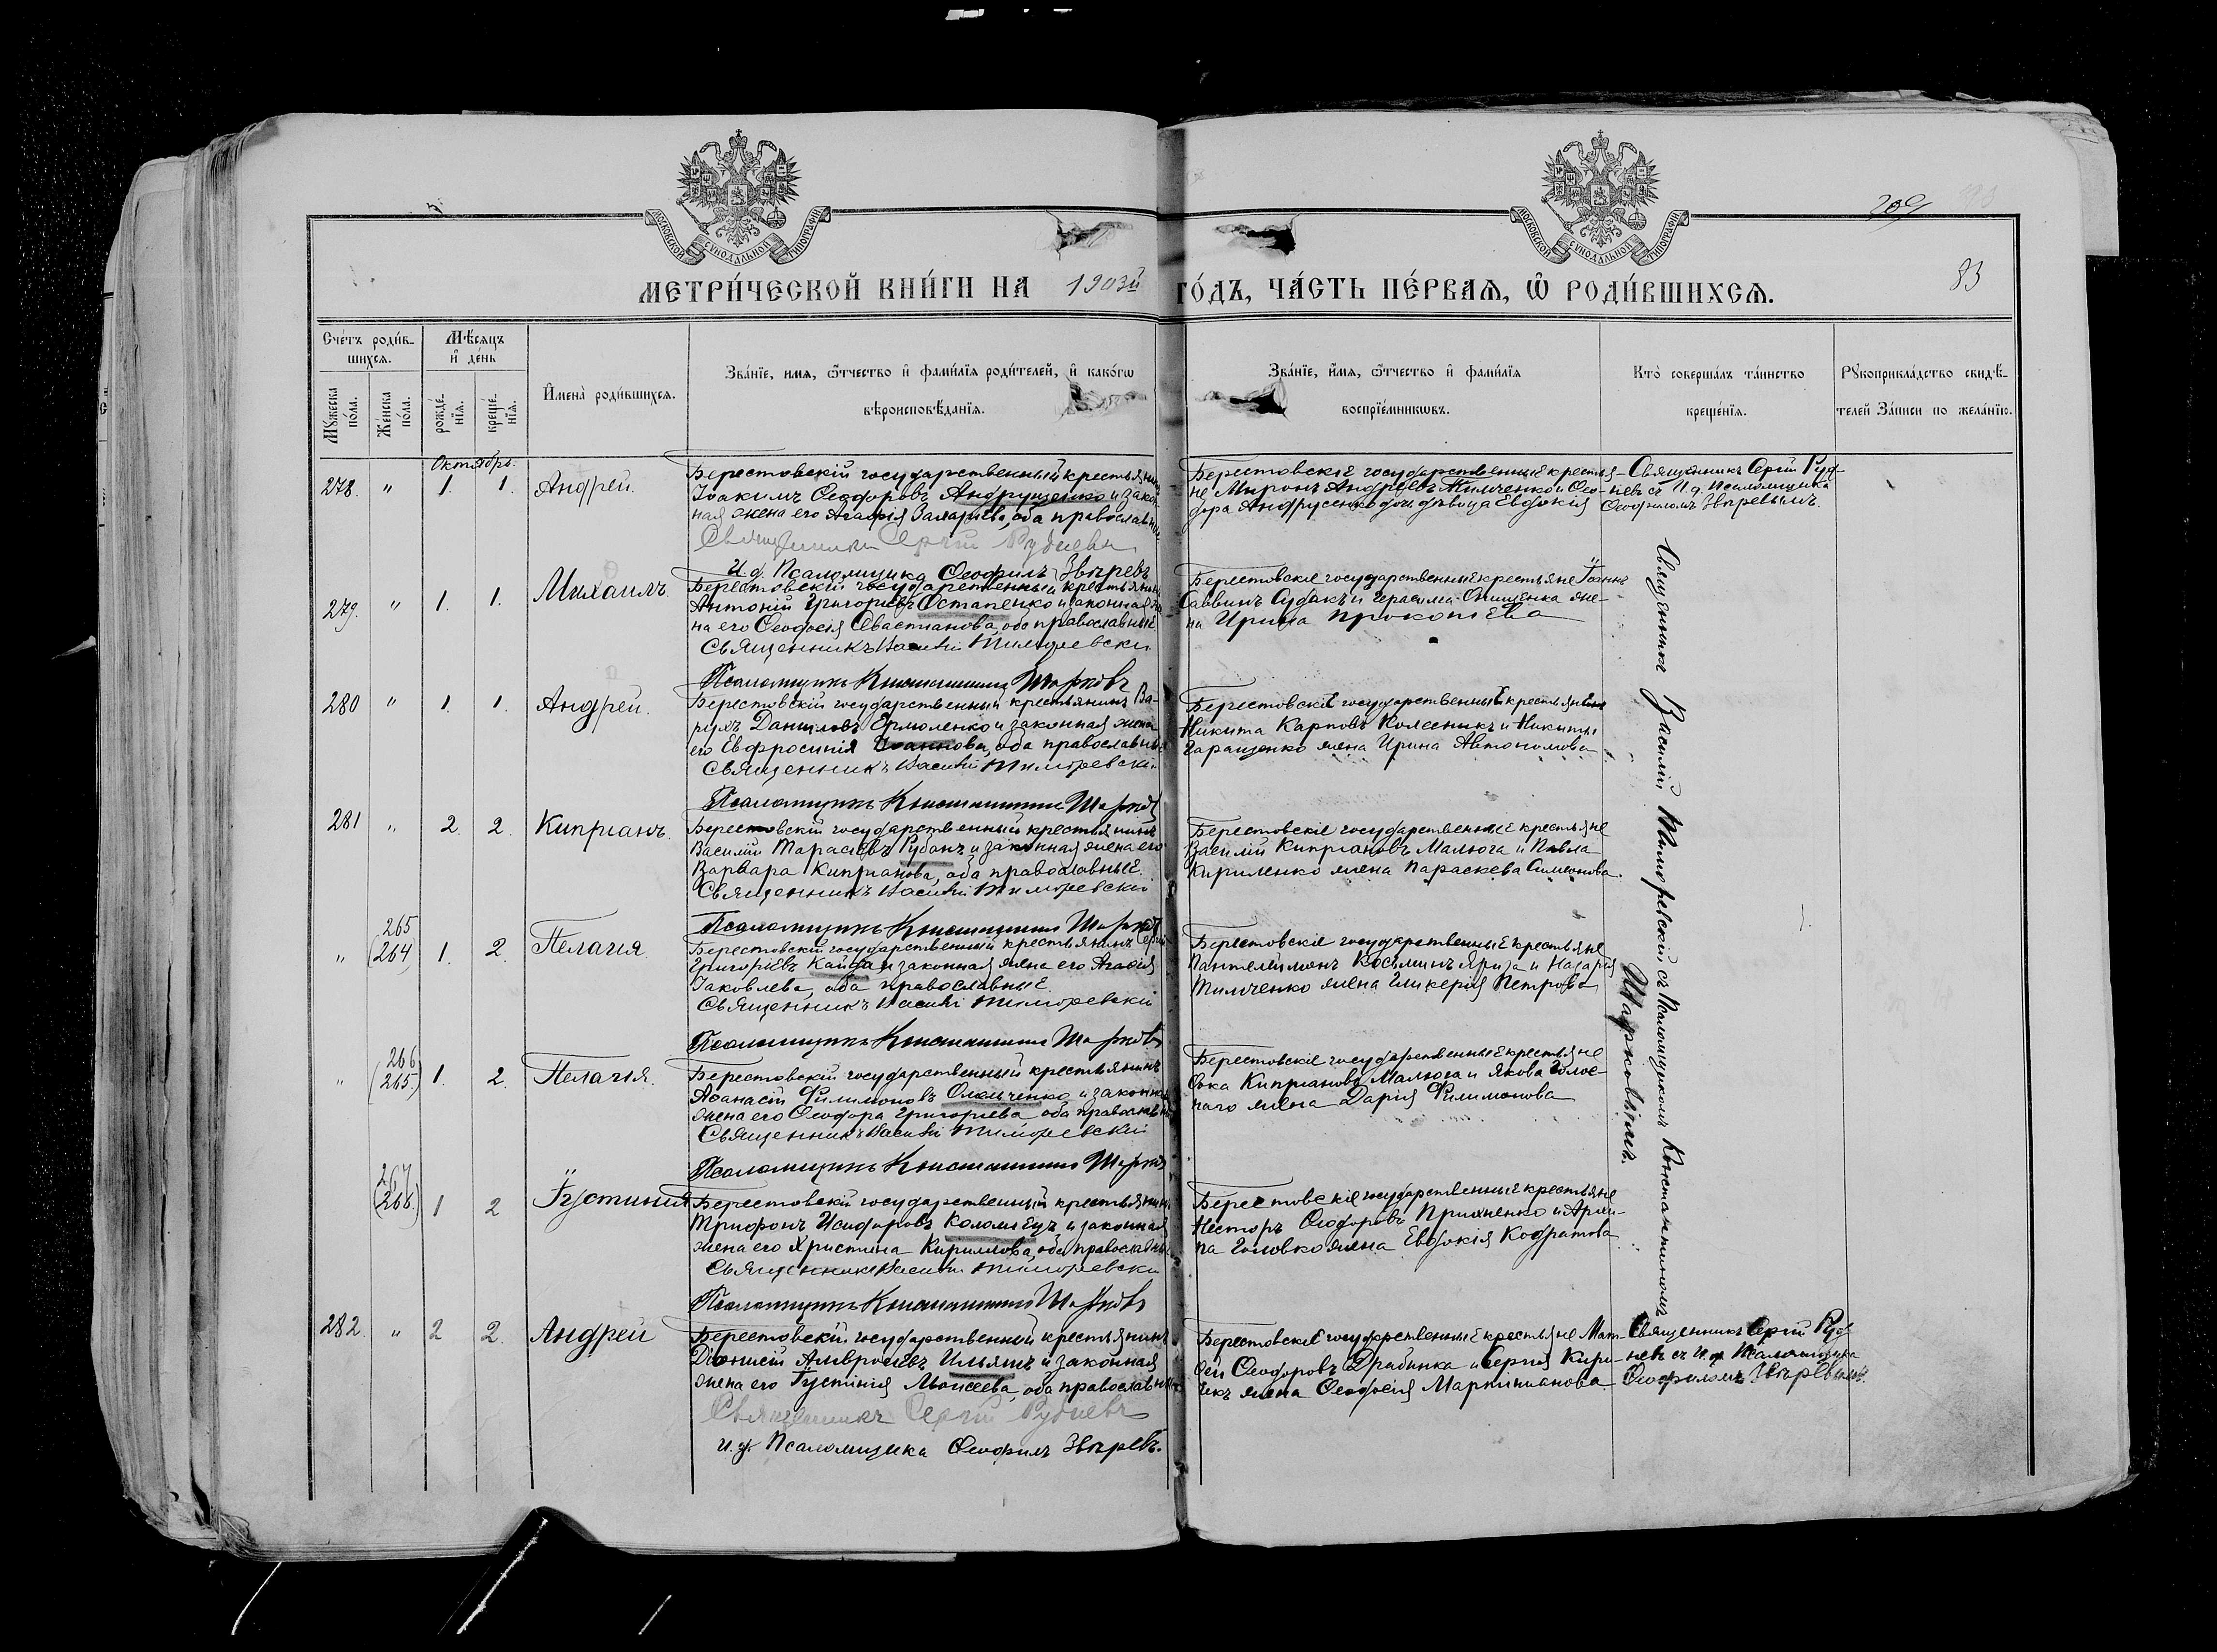 209
83
МОСКОВСКОЙ СУНОДАЛЬНОЙ ТИПОГРАФІИ
МОСКОВСКОЙ СУНОДАЛЬНОЙ ТИПОГРАФІИ
МЕТРИ́ЧЕСКОЙ КНИ́ГИ НА 1903й ГО́ДЪ, ЧА́СТЬ ПЕ́РВАѦ, Ѡ҆ РОДИ́ВШИХСѦ.
Сче́тъ роди́в-
шихсѧ.
Мѣ́сѧцъ
и҆ де́нь
Мꙋ́жеска
по́ла.
Же́нска
по́ла.
рожде́-
нїѧ.
креще́-
нїѧ.
И҆мена̀ роди́вшихсѧ.
Зва́нїе, имѧ, ѻ҆́тчество и҆ фами́лїѧ роди́телей, и҆ како́гѡ
вѣроисповѣ́данїѧ.
Зва́нїе, и҆́мѧ, ѻ҆́тчество и҆ фами́лїѧ
воспрїе́мникѡвъ.
Кто̀ соверша́лъ та́инство
креще́нїѧ.
Рꙋкоприкла́дство свидѣ́-
телей За́писи по жела́нїю.
Октябрь.
278. " 1. 1. Андрей.
Берестовскій государственный крестьянин
Іоакимъ Ѳеодоровъ Андрущенко и закон
ная жена его Агафія Захаріева, оба православные
Священникъ Сергій Рудневъ
И. д. Псаломщика Ѳеофилъ Звѣревъ
Берестовскіе государственные крестья-
не Миронъ Андреевъ Тимченко и Ѳео-
дора Андрусенко дочь дѣвица Евдокія
Священникъ Сергій Руд-
невъ съ И. д. Псаломщика
Ѳеофиломъ Звѣревымъ.
279. " 1. 1. Михаилъ
Берестовскій государственный крестьянинъ
Антоній Григоріевъ Остапенко и законная же
на его Ѳеодосія Севастіанова, оба православные
Священникъ Василій Тимоѳевскій
Псаломщикъ Константинъ Шарковъ
Берестовскіе государственные крестьяне Іоаннъ
Саввинъ Судакъ и Герасима Онищенка же-
на Ирина Прокопіева
280 " 1. 1. Андрей.
Берестовскій государственный крестьянинъ Ва-
рухъ Даниловъ Ермоленко и законная жена
его Евфросинія Іоаннова, оба православные
Священникъ Василій Тимоѳевскій
Псаломщикъ Константинъ Шарковъ
Берестовскіе государственные крестьяне
Никита Карповъ Колесникъ и Никиты
Гаращенко жена Ирина Автономова
281 " 2. 2. Кипріанъ.
Берестовскій государственный крестьянинъ
Василій Тарасіевъ Рубанъ и законная жена его
Варвара Кипріанова, оба православные.
Священникъ Василій Тимоѳевскій
Псаломщикъ Константинъ Шарковъ
Берестовскіе государственные крестьяне
Василій Кипріановъ Малюга и Павла
Кириленко жена Параскева Симеонова.
265
" (264) 1. 2. Пелагія
Берестовскій государственный крестьянинъ Сергій
Григоріевъ Кайда и законная жена его Агафія
Іаковлева, оба православные
Священникъ Василій Тимоѳевскій
Псаломщикъ Константинъ Шарковъ
Берестовскіе государственные крестьяне
Пантелеимонъ Косьминъ Ярига и Назарія
Тимченко жена Гликерія Петрова
266
" (265) 1. 2. Пелагія.
Берестовскій государственный крестьянинъ
Аѳанасій Филимоновъ Омельченко и законная
жена его Ѳеодора Григоріева оба православные
Священникъ Василій Тимоѳевскій
Псаломщикъ Константинъ Шарковъ
Берестовскіе государственные крестьяне
Ѳока Кипріановъ Малюга и Якова Голое-
наго жена Дарія Филимонова
267
(266.) 1 2 Іустинія
Берестовскій государственный крестьянинъ
Трифонъ Исидоровъ Коломіецъ и законная
жена его Христина Кириллова, оба православные
Священникъ Василій Тимоѳевскій
Псаломщикъ Константинъ Шарковъ
Берестовскіе государственные крестьяне
Несторъ Ѳеодоровъ Прихненко и Архи-
па Головко жена Евдокія Кодратова
Священникъ Василій Тимоѳевскій съ Псаломщикомъ Константиномъ
Шарковымъ.
282. " 2 2. Андрей
Берестовскій государственный крестьянинъ
Діонисій Амвросіевъ Ильяшъ и законная
жена его Іустинія Моисеева, оба православные
Священникъ Сергій Рудневъ
И. д. Псаломщика Ѳеофилъ Звѣревъ.
Берестовскіе государственные крестьяне Мат-
ѳей Ѳеодоровъ Драбинка и Сергія Кири-
чекъ жена Ѳеодосія Мартиніанова.
Священникъ Сергій Руд-
невъ съ И. д. Псаломщика
Ѳеофиломъ Звѣревымъ.